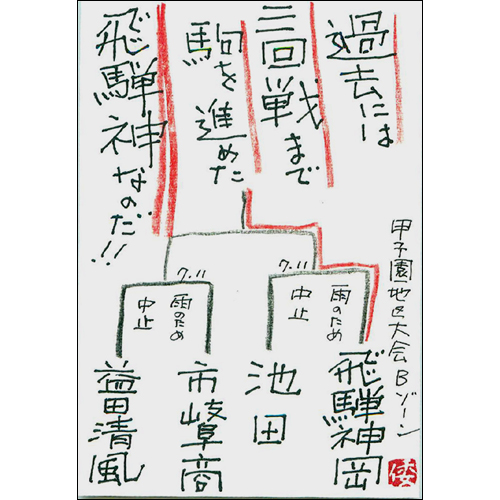 過去には
三回戦まで
駒を進めた
飛騨神なのだ!!
甲子園地区大会Bゾーン
7.11
雨のため
中止
7.11
雨のため
中止
飛騨神岡
池田
市岐阜商
益田清風
倭